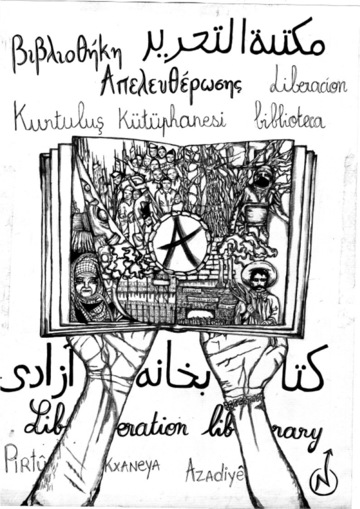 Βιβλιοθήκη مكتبة التحرير
Απελευθέρωσης Liberacion
Kurtuluş Kütüphanesi biblioteca
A
کتابخانه آزادی
Liberation library
PIRTÛKXANEYA AZADIYÊ
N